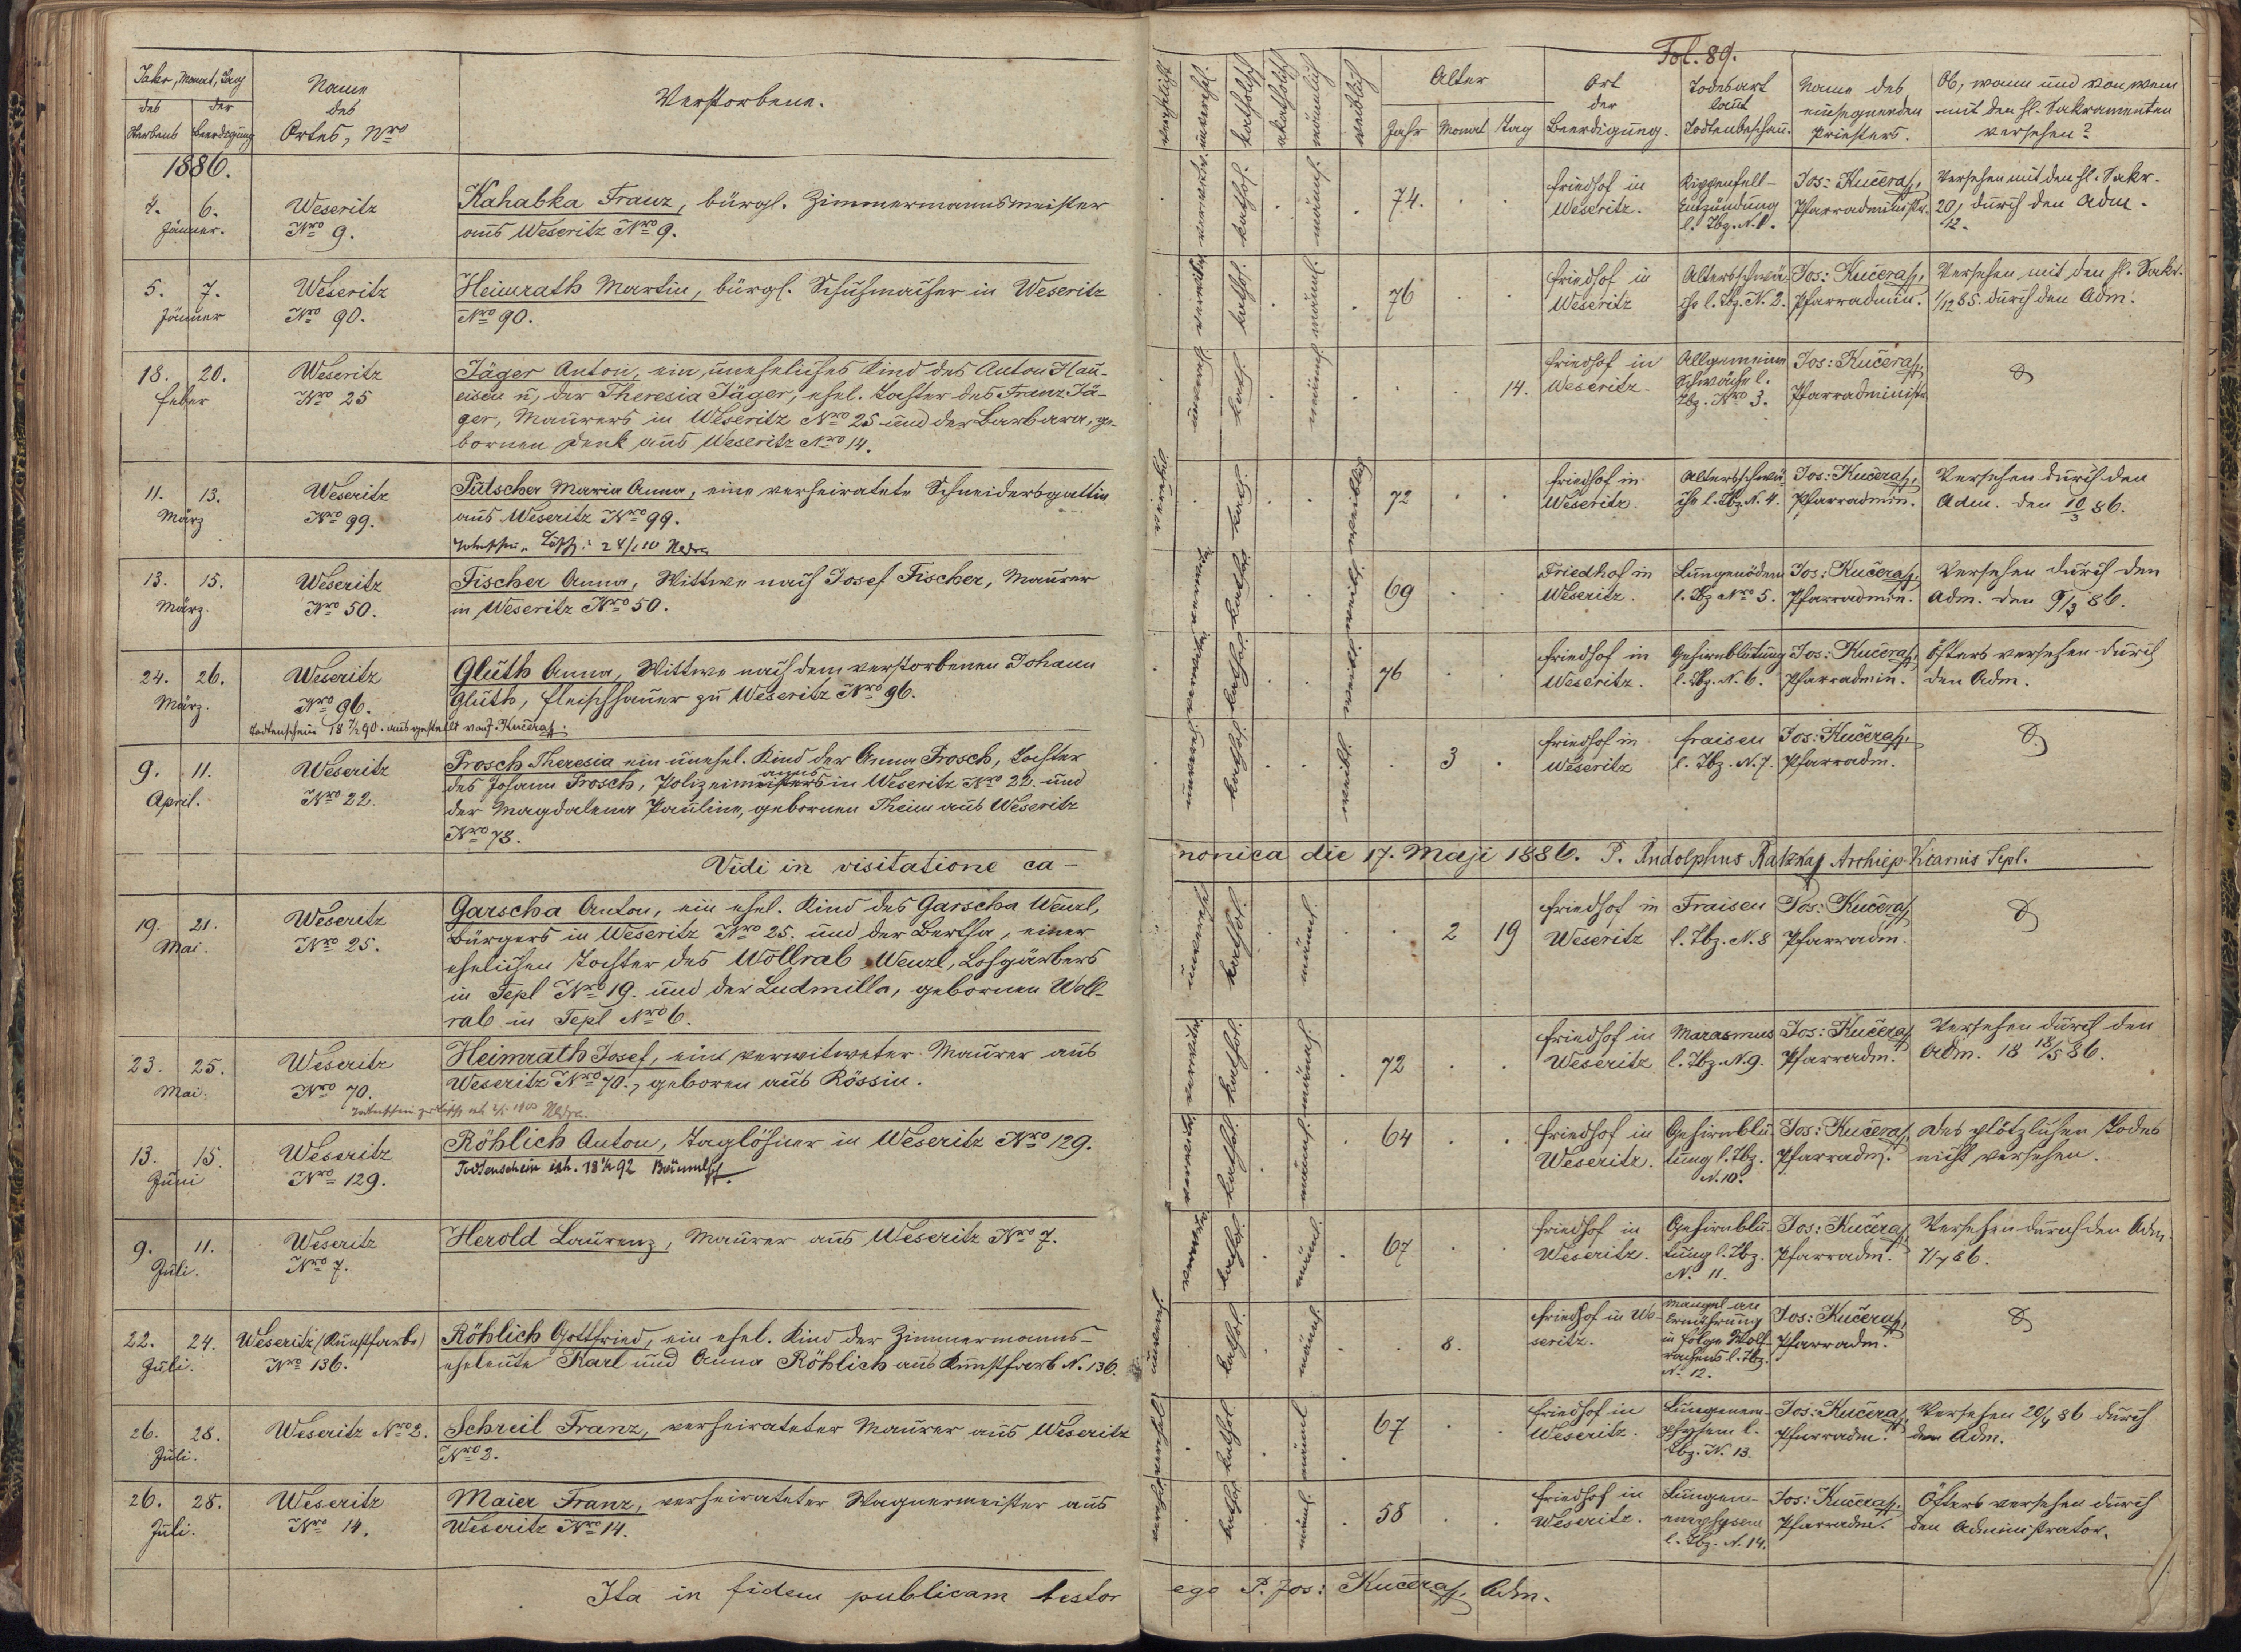 Fol. 89.
Jahr, Monat, Tag
des Sterbens
der Beerdigung
Name des Ortes, Nro
Verstorbene.
verehelicht
unverehel.
katholisch
akatholisch
männlich
weiblich
Alter
Jahr Monat Tag
Ort der Beerdigung.
Todesart laut Todtenbeschau.
Name des einsegnenden Priesters.
Ob, wann und von wem mit den hl. Sakramenten versehen?
1886.
4. 6.
Jänner.
Weseritz
Nro 9.
Kahabka Franz, bürgl. Zimmermannsmeister
aus Weseritz Nro 9.
verwitw. kathol. männl. 74.
Friedhof in
Weseritz.
Rippenfell-
Entzündung
l. Tbz. N. 1.
Jos: Kučera,
Pfarradministr.
Versehen mit den hl. Sakr.
20/12. durch den Adm.
5. 7.
Jänner
Weseritz
Nro 90.
Heimrath Martin, bürgl. Schuhmacher in Weseritz
Nro 90.
verwitw. kathol. männl. 76
Friedhof in
Weseritz
Altersschwä-
che l. Tbz. N. 2.
Jos: Kučera,
Pfarradmin.
Versehen mit den hl. Sakr.
1/12 85. durch den Adm.
18. 20.
Feber
Weseritz
Nro 25
Jäger Anton, ein uneheliches Kind des Anton Hau-
eisen u. der Theresia Jäger, ehel. Tochter des Franz Jä-
ger, Maurers in Weseritz Nro 25 und der Barbara, ge-
bornen Denk aus Weseritz Nro 14.
unvereh. kath. männl. 14.
Friedhof in
Weseritz.
Allgemeine
Schwäche l.
Tbz. Nro 3.
Jos: Kučera,
Pfarradministr.
11. 13.
März
Weseritz
Nro 99.
Pütscher Maria Anna, eine verheiratete Schneidersgattin
aus Weseritz Nro 99.
verehel. kath. weiblich 72
Friedhof in
Weseritz.
Altersschwä-
che l. Tbz. N. 4.
Jos: Kučera,
Pfarradmin.
Versehen durch den
Adm. den 10/3 86.
13. 15.
März.
Weseritz
Nro 50.
Fischer Anna, Wittwe nach Josef Fischer, Maurer
in Weseritz Nro 50.
verwitw. kathol. weibl. 69
Friedhof in
Weseritz.
Lungenödem
l. Tbz Nro 5.
Jos: Kučera,
Pfarradmin.
Versehen durch den
Adm. den 9/3 86.
24. 26.
März.
Weseritz
Nro 96.
Gluth Anna, Wittwe nach dem verstorbenen Johann
Gluth, Fleischhauer zu Weseritz Nro 96.
Todtenschein 18 7/2 90. ausgestellt von J. Kučera.
verwitw. kathol. weibl. 76
Friedhof in
Weseritz.
Gehirnblutung
l. Tbz. N. 6.
Jos: Kučera,
Pfarradmin.
Öfters versehen durch
den Adm.
9. 11.
April.
Weseritz
Nro 22.
Prosch Theresia ein unehel. Kind der Anna Prosch, Tochter
des Johann Prosch, Polizeimanns in Weseritz Nro 22. und
der Magdalena Pauline, gebornen Theim aus Weseritz
Nro 78.
unverehel. kathol. weibl. 3
Friedhof in
Weseritz
Fraisen
l. Tbz. N. 7.
Jos: Kučera,
Pfarradm.
Vidi in visitatione ca-
nonica die 17. Maji 1886. P. Rudolphus Ratzka Archiep. Vicarius Tepl.
19. 21.
Mai.
Weseritz
Nro 25.
Garscha Anton, ein ehel. Kind des Garscha Wenzl,
Bürgers in Weseritz Nro 25. und der Bertha, einer
ehelichen Tochter des Wollrab Wenzl, Lohgärbers
in Tepl Nro 19. und der Ludmilla, gebornen Woll-
rab in Tepl Nro 6.
unverehel. kathol. männl. 2 19
Friedhof in
Weseritz
Fraisen
l. Tbz. N. 8
Jos: Kučera,
Pfarradm.
23. 25.
Mai.
Weseritz
Nro 70.
Heimrath Josef, ein verwitweter Maurer aus
Weseritz Nro 70., geboren aus Rössin.
verwitw. kathol. männl. 72
Friedhof in
Weseritz
Marasmus
l. Tbz. N. 9.
Jos: Kučera,
Pfarradm.
Versehen durch den
Adm. 18 18/5 86.
13. 15.
Juni
Weseritz
Nro 129.
Röhlich Anton, Taglöhner in Weseritz Nro 129.
verwitw. kathol. männl. 64
Friedhof in
Weseritz.
Gehirnblu-
tung l. Tbz.
N. 10.
Jos: Kučera,
Pfarradm.
Des plötzlichen Todes
nicht versehen.
9. 11.
Juli.
Weseritz
Nro 7.
Herold Laurenz, Maurer aus Weseritz Nro 7.
verwitw. kathol. männl. 67
Friedhof in
Weseritz.
Gehirnblu-
tung l. Tbz.
N. 11.
Jos: Kučera,
Pfarradm.
Versehen durch den Adm.
7/7 86.
22. 24.
Juli.
Weseritz (Kunstfarbe)
Nro 136.
Röhlich Gottfried, ein ehel. Kind der Zimmermanns-
eheleute Karl und Anna Röhlich aus Kunstfarb N. 136.
unverehel. kathol. männl. 8.
Friedhof in We-
seritz.
Mangel an
Ernährung
in Folge Wolf-
rachens l. Tbz.
N. 12.
Jos: Kučera,
Pfarradm.
26. 28.
Juli.
Weseritz Nro 2.
Schreil Franz, verheirateter Maurer aus Weseritz
Nro 2.
verehel. kathol. männl. 67
Friedhof in
Weseritz.
Lungenem-
physem l.
Tbz. N. 13.
Jos: Kučera,
Pfarradm.
Versehen 20/4 86 durch
den Adm.
26. 28.
Juli.
Weseritz
Nro 14.
Maier Franz, verheirateter Wagnermeister aus
Weseritz Nro 14.
verehel. kathol. männl. 58
Friedhof in
Weseritz.
Lungen-
emphysem
l. Tbz. N. 14.
Jos: Kučera,
Pfarradm.
Öfters versehen durch
den Administrator.
Ita in fidem publicam testor
ego P. Jos: Kučera, Adm.